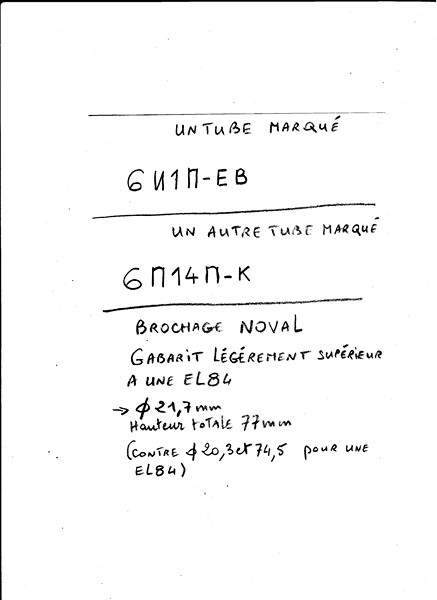 UN TUBE MARQUÉ
6И1П-ЕВ
UN AUTRE TUBE MARQUÉ
6П14П-К
BROCHAGE NOVAL
GABARIT LÉGÉREMENT SUPÉRIEUR
A UNE EL84
→ ϕ 21,7 mm
HAUTEUR TOTALE 77mm
(CONTRE ϕ 20,3 et 74,5 POUR UNE
EL84)